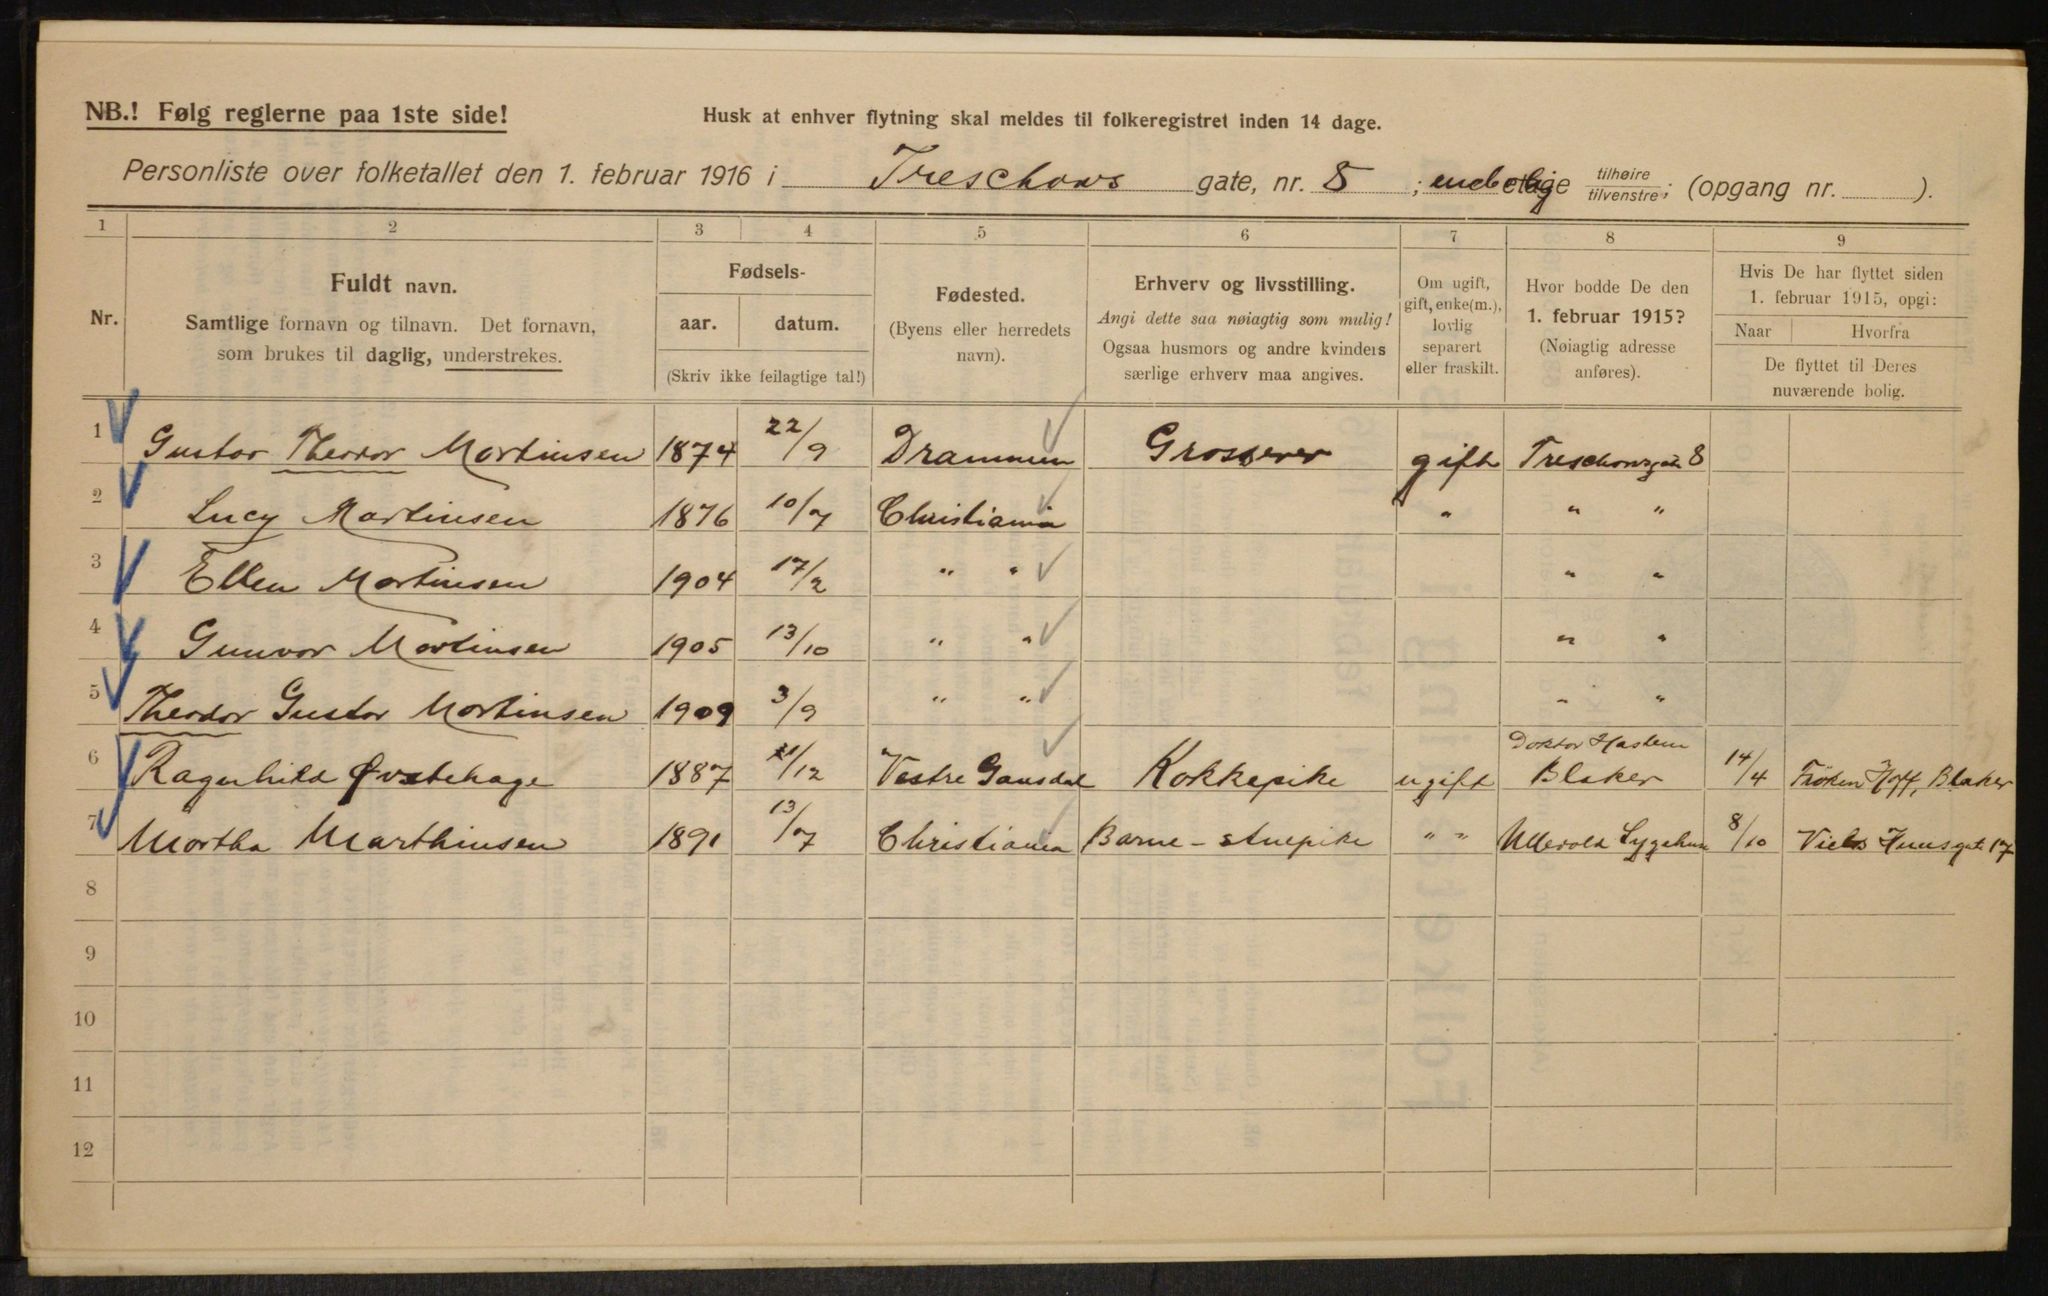 NB.! Følg reglerne paa 1ste side!
Husk at enhver flytning skal meldes til folkeregistret inden 14 dage.
Personliste over folketallet den 1. februar 1916 i Treschows gate, nr. 8; enebolig etage tilhøire tilvenstre; (opgang nr. ).
1 2 3 4 5 6 7 8 9
Nr.
Fuldt navn.
Samtlige fornavn og tilnavn. Det fornavn,
som brukes til daglig, understrekes.
Fødsels-
aar. datum.
(Skriv ikke feilagtige tal!)
Fødested.
(Byens eller herredets
navn).
Erhverv og livsstilling.
Angi dette saa nøiagtig som mulig!
Ogsaa husmors og andre kvinders
særlige erhverv maa angives.
Om ugift,
gift, enke(m.),
lovlig
separert
eller fraskilt.
Hvor bodde De den
1. februar 1915?
(Nøiagtig adresse
anføres).
Hvis De har flyttet siden
1. februar 1915, opgi:
Naar Hvorfra
De flyttet til Deres
nuværende bolig.
1 Gustav Theodor Martinsen 1874 22/9 Drammen Grosserer gift Treschowsgate 8
2 Lucy Martinsen 1876 10/7 Christiania " " "
3 Ellen Martinsen 1904 17/2 " " " "
4 Gunvor Martinsen 1905 13/10 " " " "
5 Theodor Gustav Martinsen 1909 3/9 " " " "
6 Ragnhild Øvstehage 1887 /12 Vestre Gausdal Kokkepike ugift Doktor Haslem Blaker 14/4 Frøken Hoff, Blaker
7 Martha Marthinsen 1891 13/7 Christiania Barne-stuepike " " Ullevold Sygehus 8/10 Juusgate 17
8
9
10
11
12